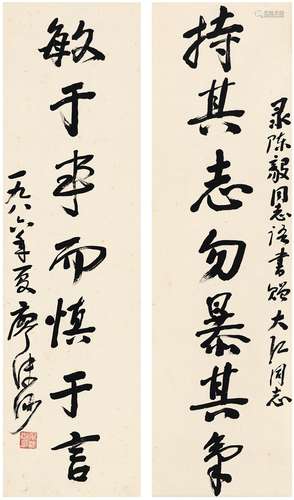 录陈毅同志语书赠大江同志
持其志勿暴其气
敏于事而慎于言
一九八六年夏廖汉生